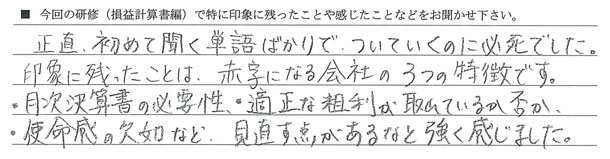 ■ 今回の研修（損益計算書編）で特に印象に残ったことや感じたことなどをお聞かせ下さい。
正直、初めて聞く単語ばかりで、ついていくのに必死でした。
印象に残ったことは、赤字になる会社の3つの特徴です。
・月次決算書の必要性、・適正な粗利が取れているか否か、
・使命感の欠如など、見直す点があるなと強く感じました。